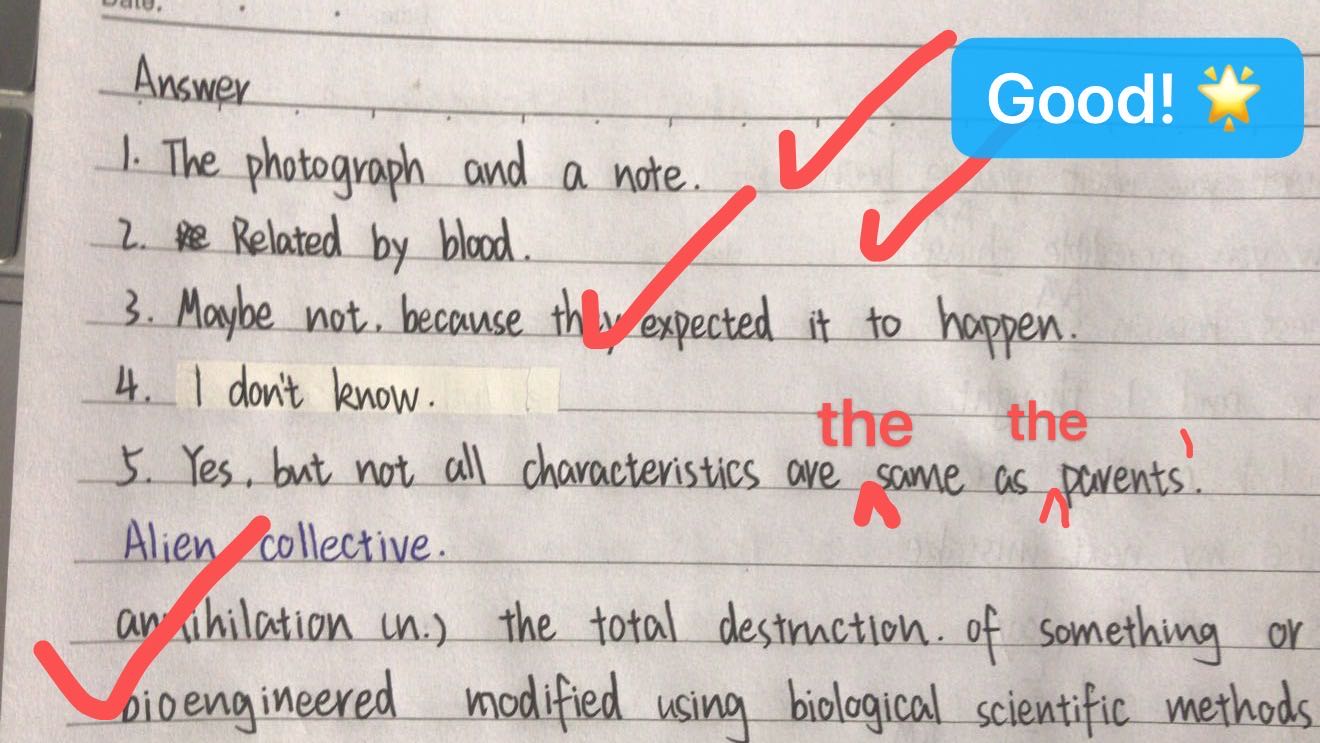 Date.
Good! 🌟
Answer
1. The photograph and a note.
2. Related by blood.
3. Maybe not. because they expected it to happen.
4. I don't know.
the the
5. Yes, but not all characteristics are same as parents'.
Alien collective.
annihilation (n.) the total destruction. of something or
bioengineered modified using biological scientific methods